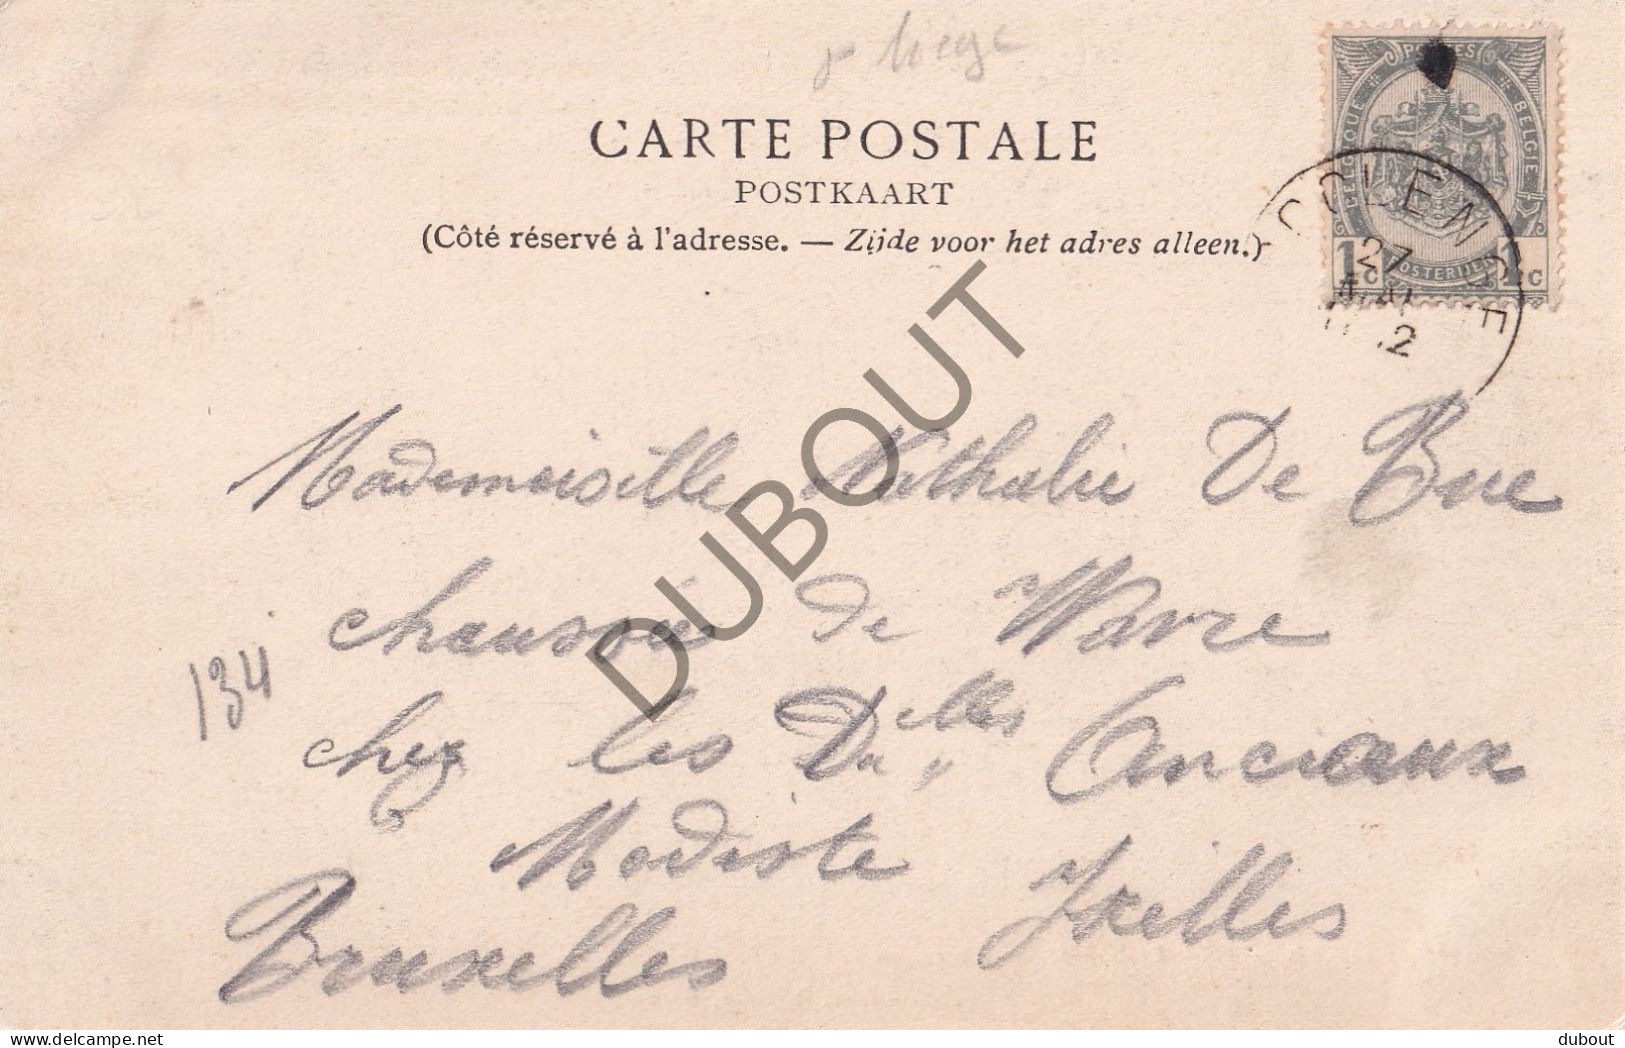 Liège
CARTE POSTALE
POSTKAART
(Côté réservé à l'adresse. — Zijde voor het adres alleen.)
POSTES
BELGIQUE BELGIE
POSTERIJEN
1c 1c
27
Mademoiselle Nathalie De Bue
chaussée de Wavre
134
chez les Dlles Anciaux
Modiste Ixelles
Bruxelles
DUBOUT
delcampe.net
dubout